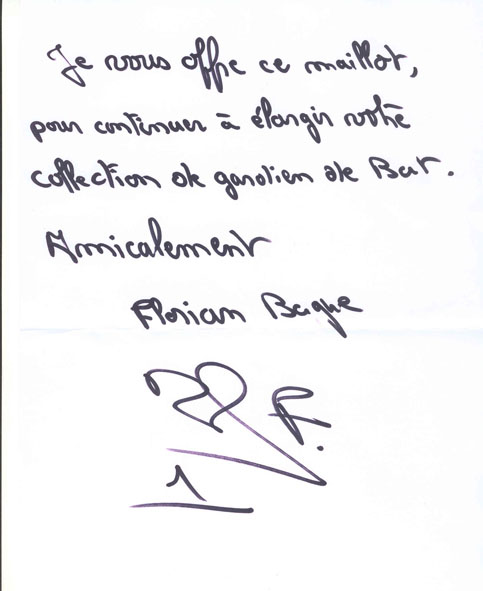 Je vous offre ce maillot,
pour continuer à élargir votre
collection de gardien de But.
Amicalement
Florian Bague
1